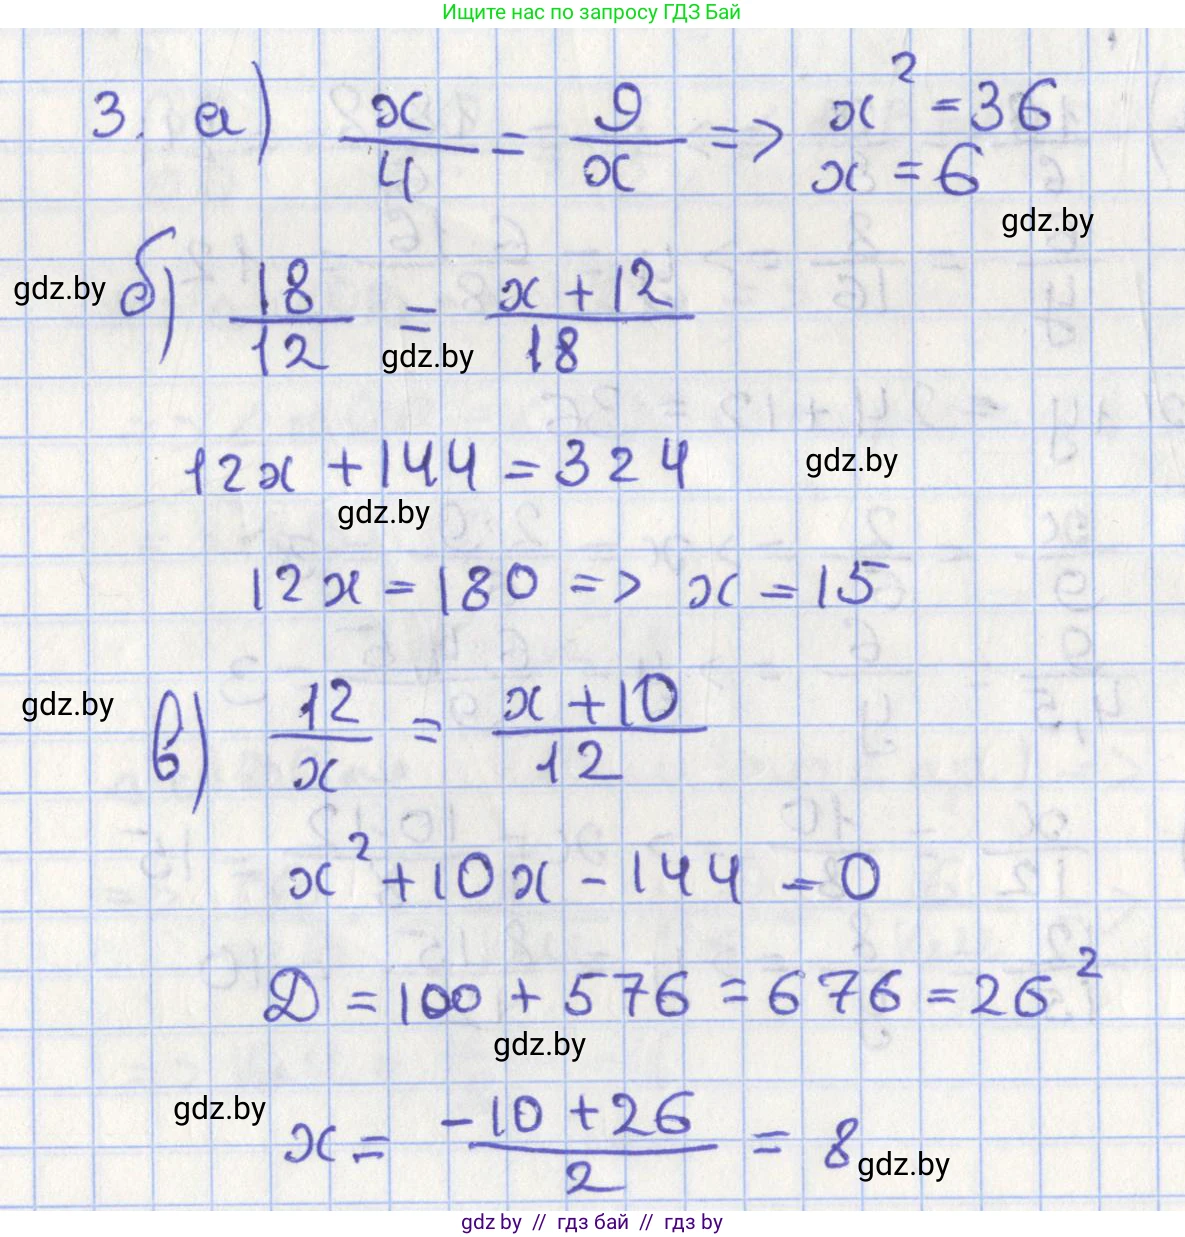 Ищите нас по запросу ГДЗ Бай
3. а) x/4 = 9/x => x² = 36
x = 6
gdz.by
gdz.by
б) 18/12 = (x + 12)/18
gdz.by
12x + 144 = 324
gdz.by
gdz.by
12x = 180 => x = 15
gdz.by
в) 12/x = (x + 10)/12
x² + 10x - 144 = 0
Д = 100 + 576 = 676 = 26²
gdz.by
gdz.by
x = (-10 + 26)/2 = 8
gdz.by
gdz by // гдз бай // гдз by